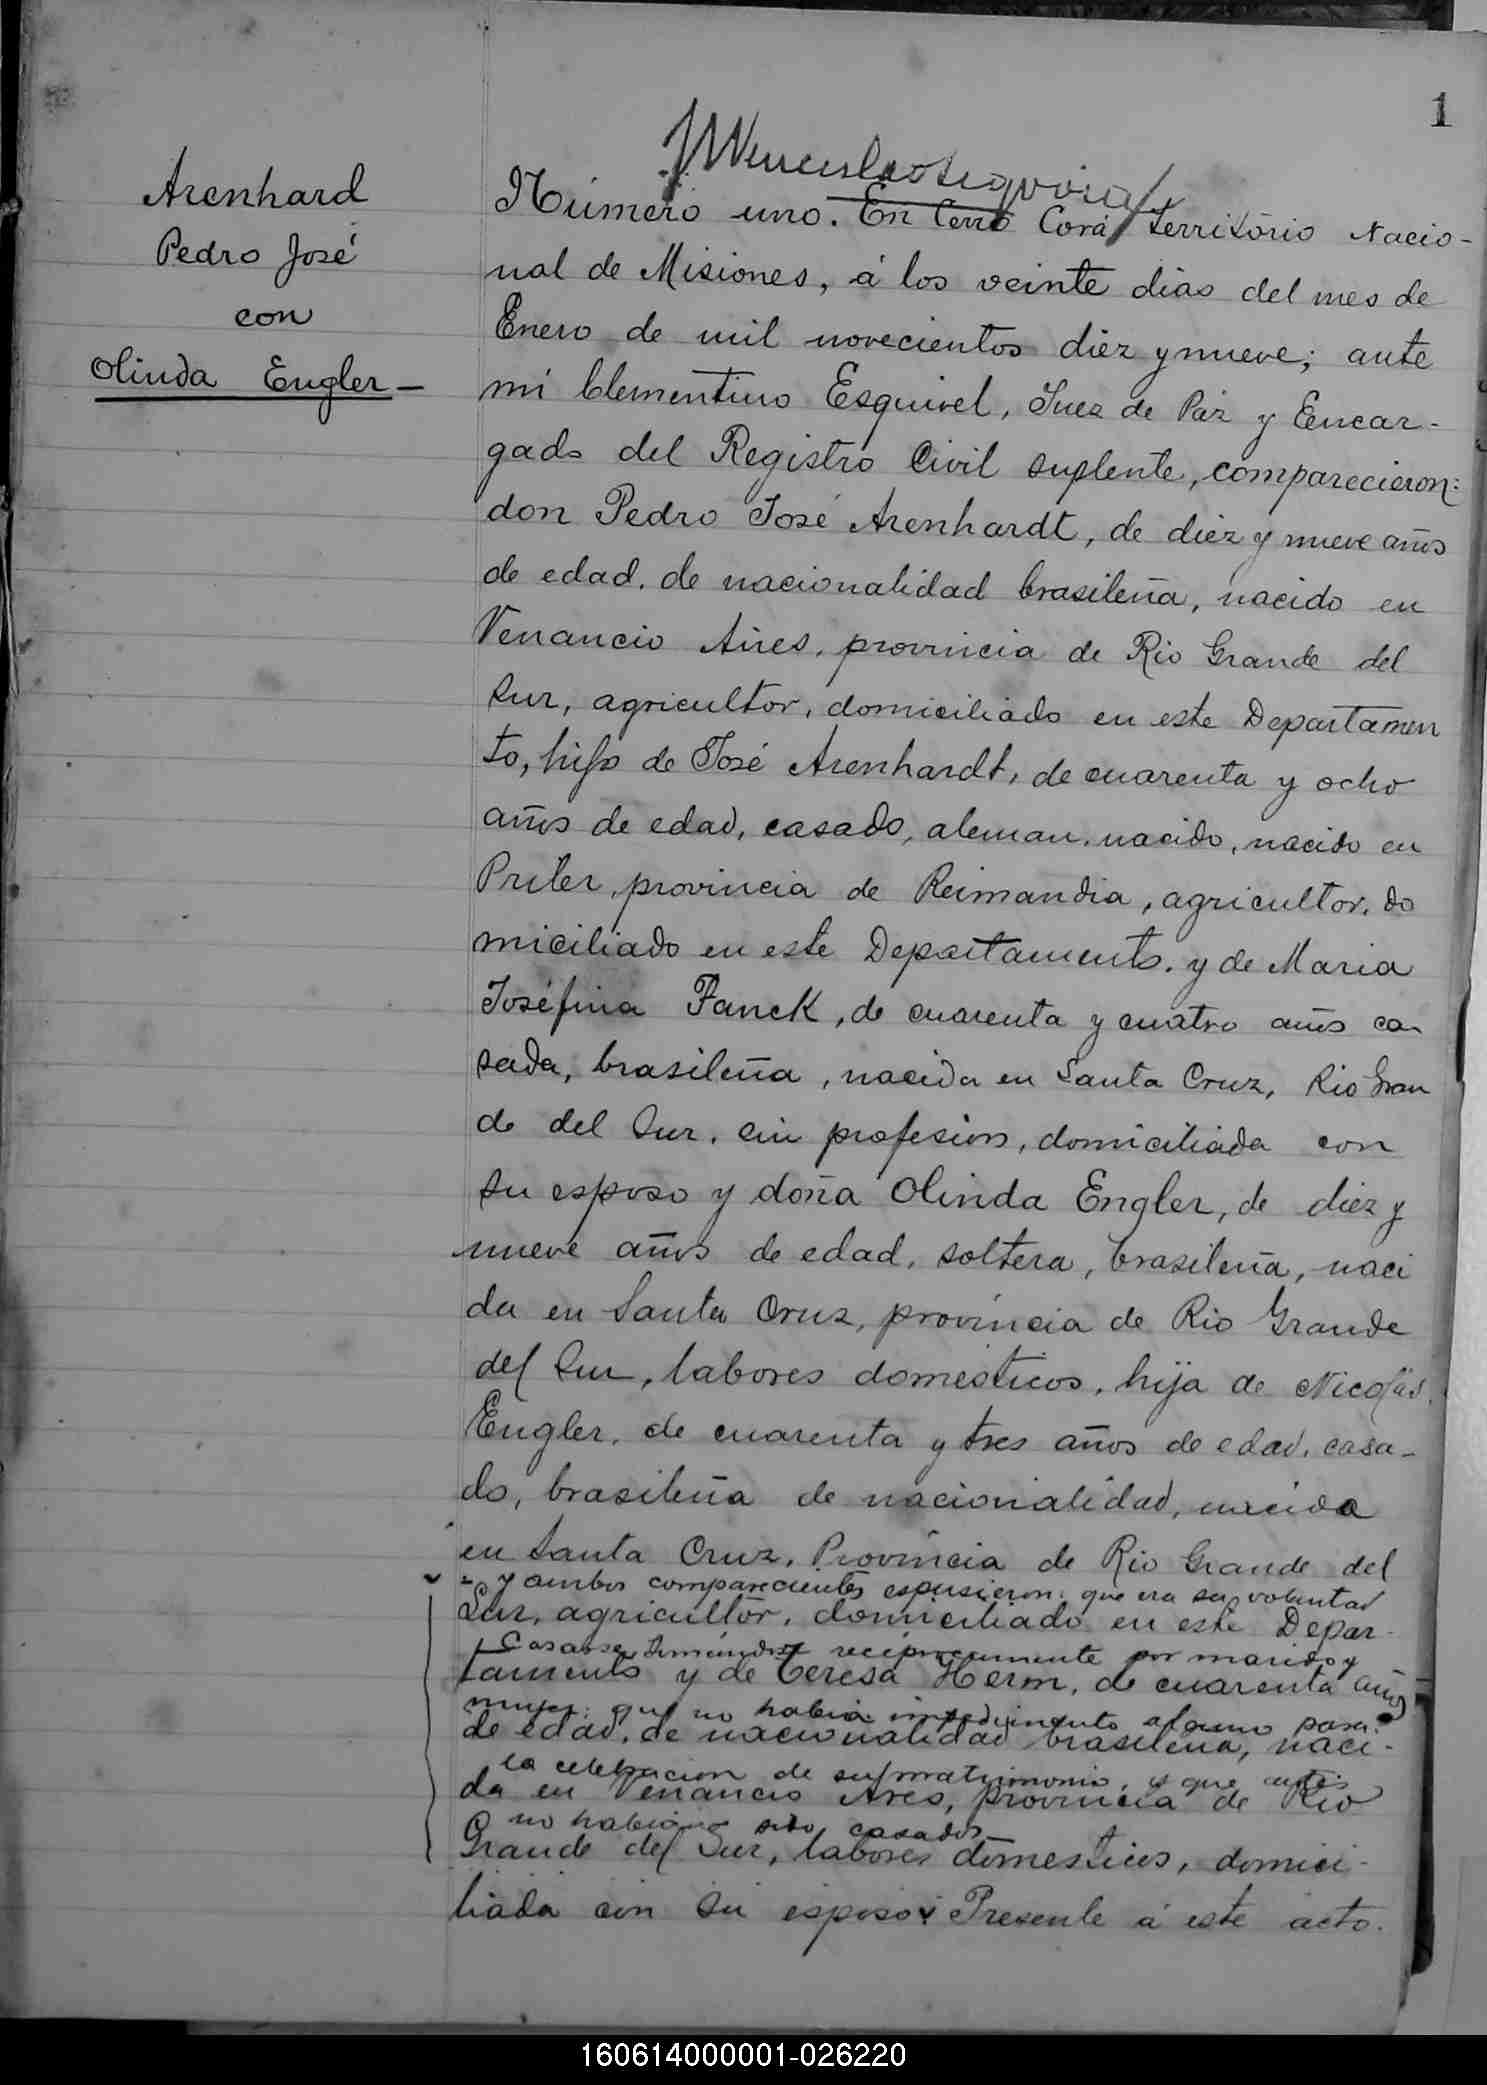 1
Arenhard
Pedro José
con
Olinda Engler —
Número uno. En Cerro Corá, territorio Nacio-
nal de Misiones, á los veinte dias del mes de
Enero de mil novecientos diez y nueve; ante
mi Clementino Esquivel, Juez de Paz y Eencar-
gado del Registro Civil suplente, comparecieron:
don Pedro José Arenhardt, de diez y nueve años
de edad, de nacionalidad brasileña, nacido en
Venancio Aires, provincia de Rio Grande del
Sur, agricultor, domiciliado en este Departamen
to, hijo de José Arenhardt, de cuarenta y ocho
años de edad, casado, aleman, nacido, nacido en
Priler, provincia de Reimandia, agricultor, do
miciliado en este Departamento, y de Maria
Joséfina Fanck, de cuarenta y cuatro años ca-
sada, brasileña, nacida en Santa Cruz, Rio Gran
de del Sur, sin profesion, domiciliada con
su esposo y doña Olinda Engler, de diez y
nueve años de edad, soltera, brasileña, naci
da en Santa Cruz, provincia de Rio Grande
del Sur, labores domésticos, hija de Nicolás
Engler, de cuarenta y tres años de edad, casa-
do, brasileña de nacionalidad, nacido
en Santa Cruz, Provincia de Rio Grande del
y ambos comparecientes espusieron: que era su voluntad
Sur, agricultor, domiciliado en este Depar-
casarse tomándose recíprocamente por marido y
tamento y de Teresa Herm, de cuarenta años
mujer: que no habia impedimento alguno para
de edad, de nacionalidad brasileña, naci-
la celebracion de su matrimonio, y que antes
da en Venancio Ares, provincia de Rio
no habian sido casados
Grande del Sur, labores domesticos, domici-
liada con su esposo. Presente á este acto.
160614000001-026220